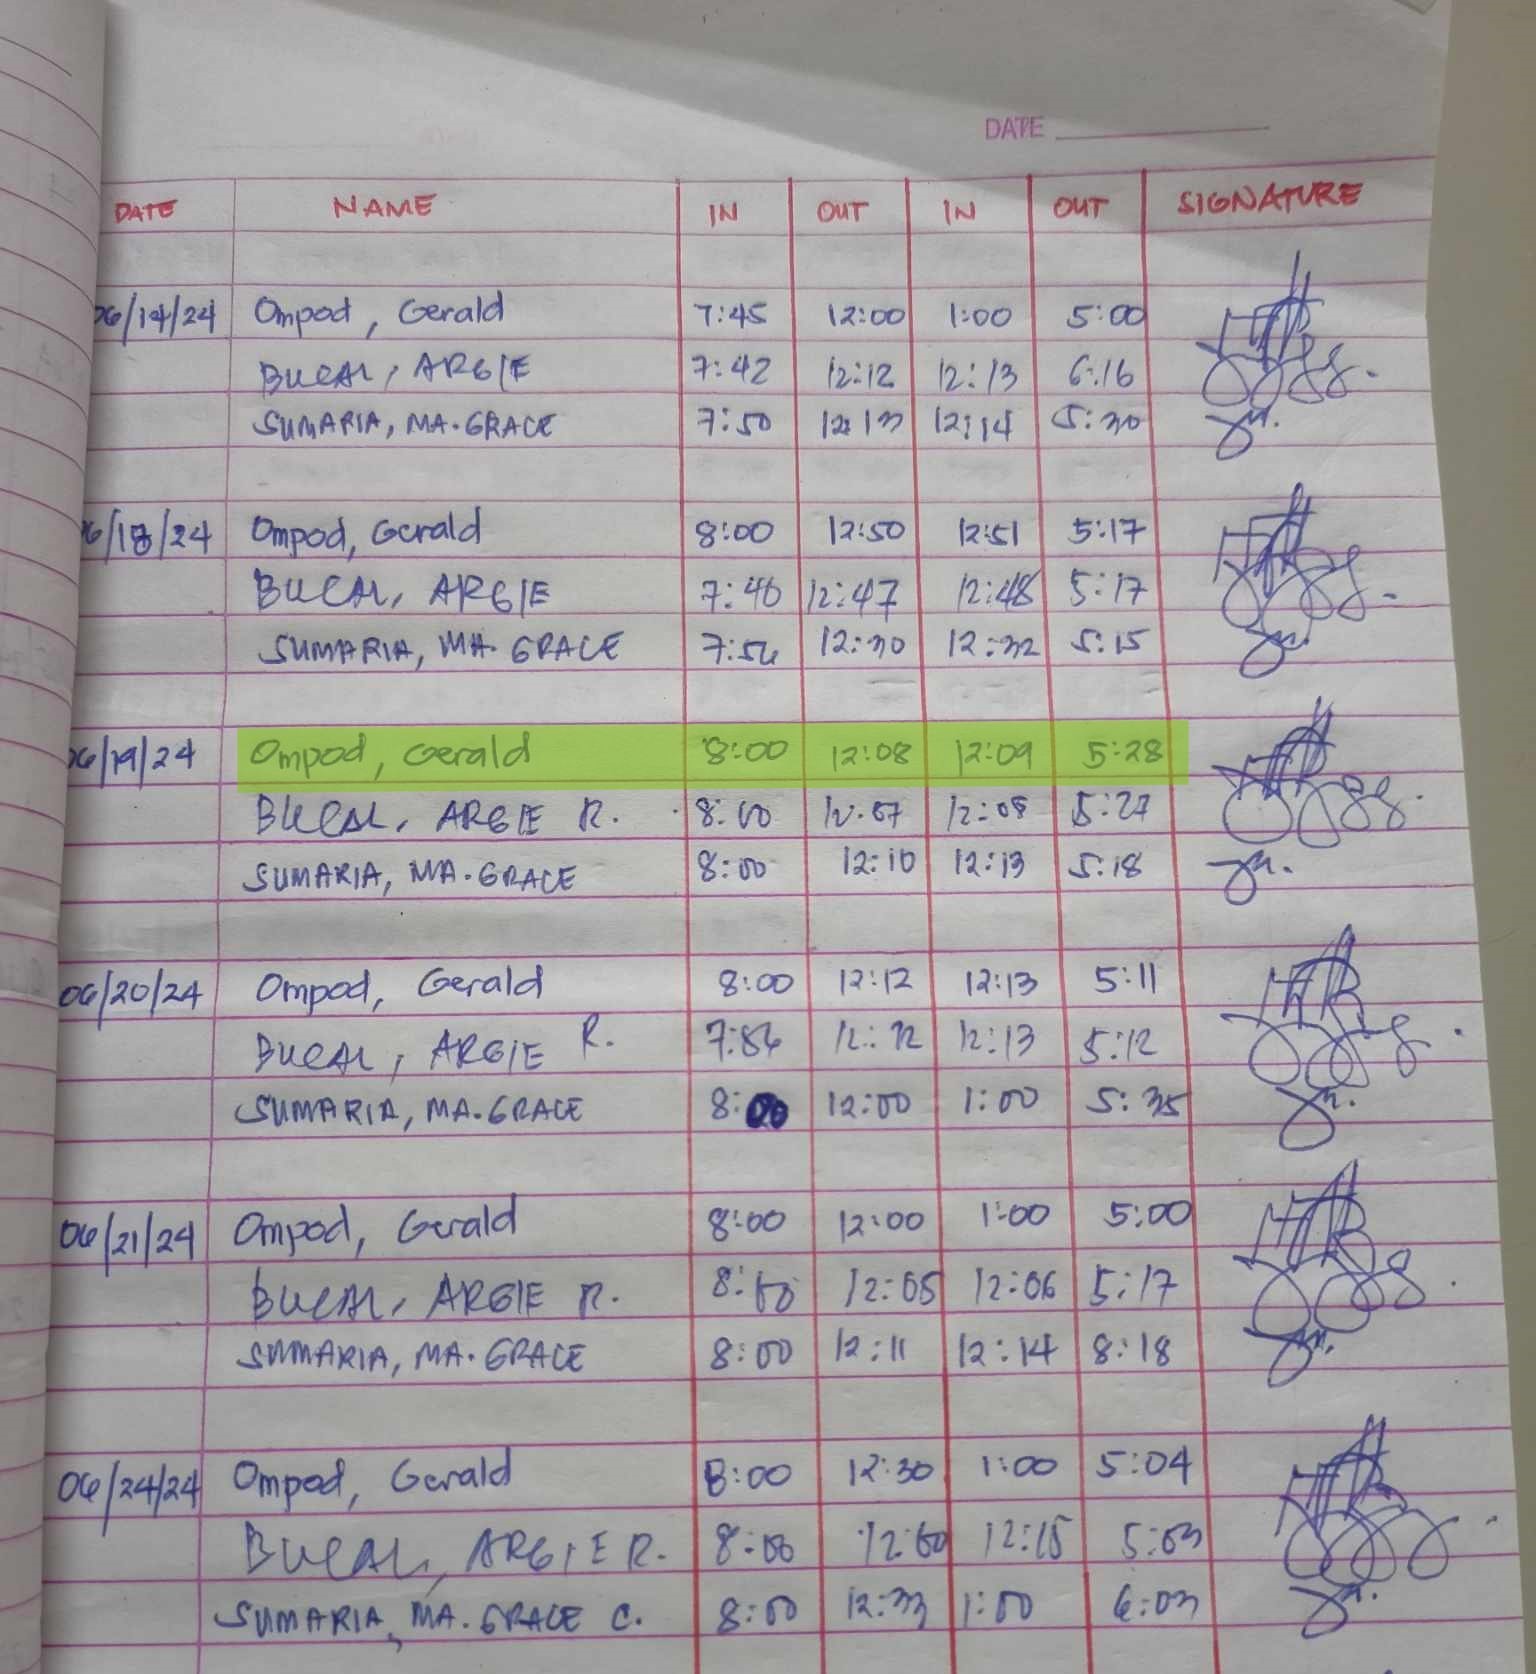 DATE
DATE NAME IN OUT IN OUT SIGNATURE
06/14/24 Ompod, Gerald 7:45 12:00 1:00 5:00
BUCAL, ARGIE 7:42 12:12 12:13 6:16
SUMARIA, MA. GRACE 7:50 12:13 12:14 5:30
06/18/24 Ompod, Gerald 8:00 12:50 12:51 5:17
BUCAL, ARGIE 7:46 12:47 12:48 5:17
SUMARIA, MA. GRACE 7:56 12:30 12:32 5:15
06/19/24 Ompod, Gerald 8:00 12:08 12:09 5:28
BUCAL, ARGIE R. 8:00 12:07 12:08 5:27
SUMARIA, MA. GRACE 8:00 12:10 12:13 5:18
06/20/24 Ompod, Gerald 8:00 12:12 12:13 5:11
BUCAL, ARGIE R. 7:56 12:12 12:13 5:12
SUMARIA, MA. GRACE 8:00 12:00 1:00 5:35
06/21/24 Ompod, Gerald 8:00 12:00 1:00 5:00
BUCAL, ARGIE R. 8:00 12:05 12:06 5:17
SUMARIA, MA. GRACE 8:00 12:11 12:14 8:18
06/24/24 Ompod, Gerald 8:00 12:30 1:00 5:04
BUCAL, ARGIE R. 8:00 12:00 12:15 5:03
SUMARIA, MA. GRACE C. 8:00 12:33 1:00 6:03